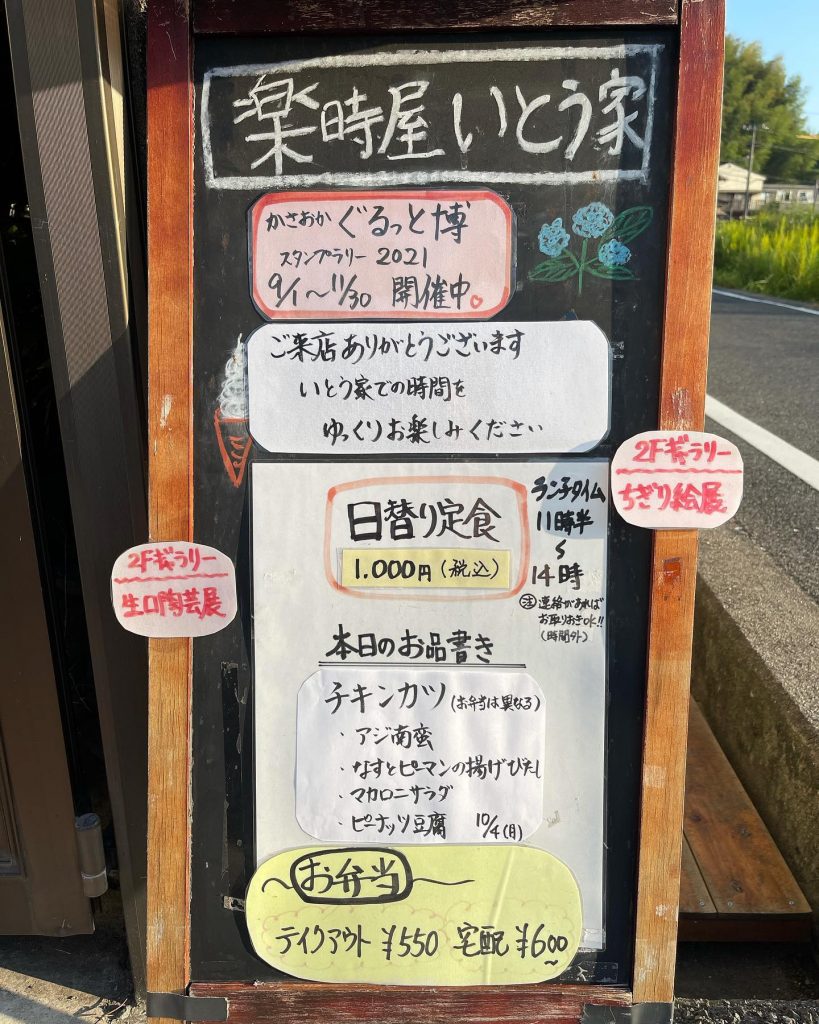 楽時屋 いとう家
かさおか ぐるっと博
スタンプラリー 2021
9/1～11/30 開催中
ご来店ありがとうございます
いとう家での時間を
ゆっくりお楽しみください
2Fギャラリー
ちぎり絵展
日替り定食
1.000円(税込)
ランチタイム
11時半
～
14時
注 連絡があれば
お取りおきOK!!
(時間外)
2Fギャラリー
生口陶芸展
本日のお品書き
チキンカツ(お弁当は異なる)
・アジ南蛮
・なすとピーマンの揚げびたし
・マカロニサラダ
・ピーナッツ豆腐 10/4(月)
～お弁当～
テイクアウト ¥550 宅配 ¥600～